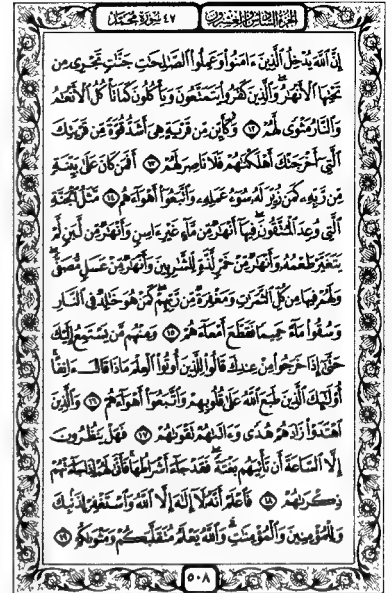 الجزء السادس والعشرون ٤٧ سورة محمد
إِنَّ ٱللَّهَ يُدۡخِلُ ٱلَّذِينَ ءَامَنُواْ وَعَمِلُواْ ٱلصَّٰلِحَٰتِ جَنَّٰتٖ تَجۡرِي مِن
تَحۡتِهَا ٱلۡأَنۡهَٰرُۖ وَٱلَّذِينَ كَفَرُواْ يَتَمَتَّعُونَ وَيَأۡكُلُونَ كَمَا تَأۡكُلُ ٱلۡأَنۡعَٰمُ
وَٱلنَّارُ مَثۡوٗى لَّهُمۡ ١٢ وَكَأَيِّن مِّن قَرۡيَةٍ هِيَ أَشَدُّ قُوَّةٗ مِّن قَرۡيَتِكَ
ٱلَّتِيٓ أَخۡرَجَتۡكَ أَهۡلَكۡنَٰهُمۡ فَلَا نَاصِرَ لَهُمۡ ١٣ أَفَمَن كَانَ عَلَىٰ بَيِّنَةٖ
مِّن رَّبِّهِۦ كَمَن زُيِّنَ لَهُۥ سُوٓءُ عَمَلِهِۦ وَٱتَّبَعُوٓاْ أَهۡوَآءَهُم ١٤ مَّثَلُ ٱلۡجَنَّةِ
ٱلَّتِي وُعِدَ ٱلۡمُتَّقُونَۖ فِيهَآ أَنۡهَٰرٞ مِّن مَّآءٍ غَيۡرِ ءَاسِنٖ وَأَنۡهَٰرٞ مِّن لَّبَنٖ لَّمۡ
يَتَغَيَّرۡ طَعۡمُهُۥ وَأَنۡهَٰرٞ مِّنۡ خَمۡرٖ لَّذَّةٖ لِّلشَّٰرِبِينَ وَأَنۡهَٰرٞ مِّنۡ عَسَلٖ مُّصَفّٗىۖ
وَلَهُمۡ فِيهَا مِن كُلِّ ٱلثَّمَرَٰتِ وَمَغۡفِرَةٞ مِّن رَّبِّهِمۡۖ كَمَنۡ هُوَ خَٰلِدٞ فِي ٱلنَّارِ
وَسُقُواْ مَآءً حَمِيمٗا فَقَطَّعَ أَمۡعَآءَهُمۡ ١٥ وَمِنۡهُم مَّن يَسۡتَمِعُ إِلَيۡكَ
حَتَّىٰٓ إِذَا خَرَجُواْ مِنۡ عِندِكَ قَالُواْ لِلَّذِينَ أُوتُواْ ٱلۡعِلۡمَ مَاذَا قَالَ ءَانِفًاۚ
أُوْلَٰٓئِكَ ٱلَّذِينَ طَبَعَ ٱللَّهُ عَلَىٰ قُلُوبِهِمۡ وَٱتَّبَعُوٓاْ أَهۡوَآءَهُمۡ ١٦ وَٱلَّذِينَ
ٱهۡتَدَوۡاْ زَادَهُمۡ هُدٗى وَءَاتَىٰهُمۡ تَقۡوَىٰهُمۡ ١٧ فَهَلۡ يَنظُرُونَ
إِلَّا ٱلسَّاعَةَ أَن تَأۡتِيَهُم بَغۡتَةٗۖ فَقَدۡ جَآءَ أَشۡرَاطُهَاۚ فَأَنَّىٰ لَهُمۡ إِذَا جَآءَتۡهُمۡ
ذِكۡرَىٰهُمۡ ١٨ فَٱعۡلَمۡ أَنَّهُۥ لَآ إِلَٰهَ إِلَّا ٱللَّهُ وَٱسۡتَغۡفِرۡ لِذَنۢبِكَ
وَلِلۡمُؤۡمِنِينَ وَٱلۡمُؤۡمِنَٰتِۗ وَٱللَّهُ يَعۡلَمُ مُتَقَلَّبَكُمۡ وَمَثۡوَىٰكُمۡ ١٩
٥٠٨